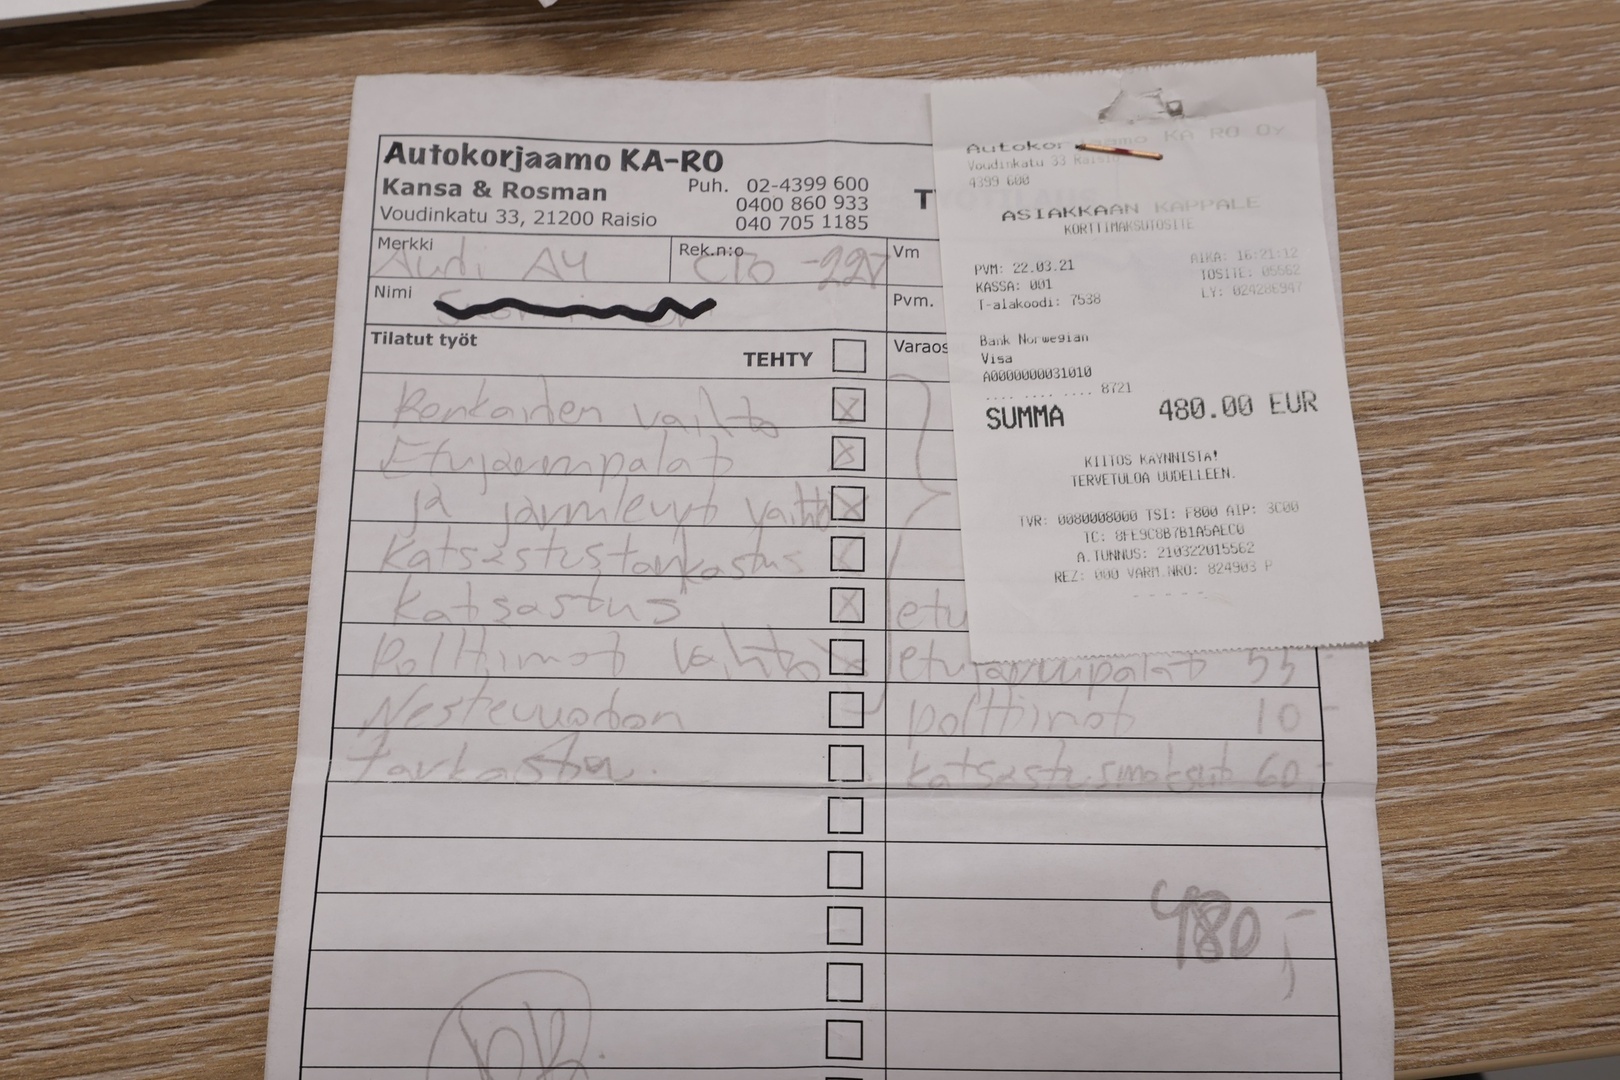 Autokorjaamo KA-RO
Kansa & Rosman
Voudinkatu 33, 21200 Raisio
Puh. 02-4399 600
0400 860 933
040 705 1185
Merkki
Audi A4
Rek.n:o
CTO -227
Vm
Nimi
Pvm.
Tilatut työt
TEHTY
Varaos
Renkaiden vaihto
Etujarrupalat
ja jarrulevyt vaihto
Katsastustarkastus
Katsastus
etu
Polttimot vaihto
etujarrupalat 55
Nestevuodon
polttimot 10 -
tarkastus.
katsastusmaksut 60,-
480,-
OK.
Autokorjaamo KA RO Oy
Voudinkatu 33 Raisio
4399 600
ASIAKKAAN KAPPALE
KORTTIMAKSUTOSITE
PVM: 22.03.21
AIKA: 16:21:12
KASSA: 001
TOSITE: 05562
T-alakoodi: 7538
LY: 02428E947
Bank Norwegian
Visa
A0000000031010
.... .... .... 8721
SUMMA 480.00 EUR
KIITOS KÄYNNISTÄ!
TERVETULOA UUDELLEEN.
TVR: 0080008000 TSI: F800 AIP: 3C00
TC: 8FE9C8B7B1A5AEC0
A.TUNNUS: 210322015562
REZ: 000 VARM.NRO: 824903 P
- - - - -